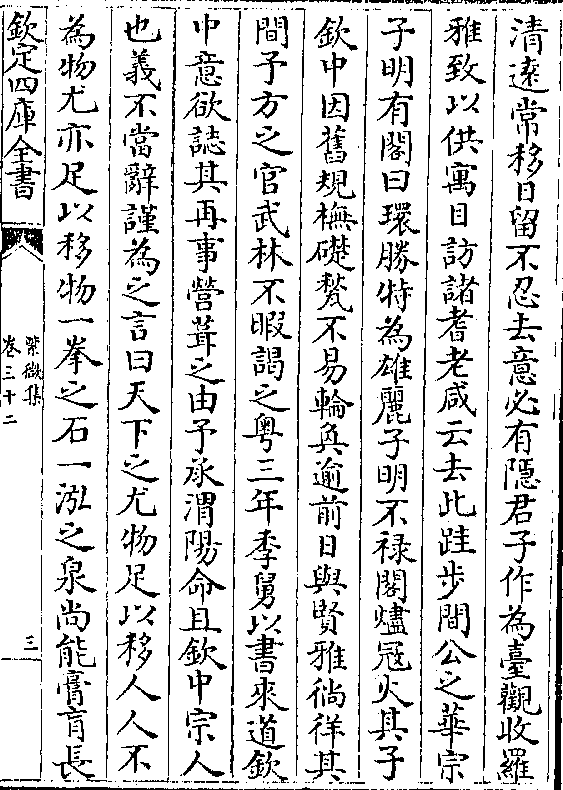 清逺常移日留不忍去意必有隱君子作為臺觀收羅
雅致以供寓目訪諸耆老咸云去此跬步間公之華宗
子明有閣曰環勝特為雄麗子明不禄閣燼冦火其子
欽中因舊規橅礎甃不易輪奐逾前日與賢雅徜徉其
間予方之官武林不暇謁之粤三年季舅以書來道欽
中意欲誌其再事營葺之由予承渭陽命且欽中宗人
也義不當辭謹為之言曰天下之尤物足以移人人不
為物尤亦足以移物一拳之石一泓之泉尚能膏肓長
欽定四庫全書
紫微集
卷三十二
三